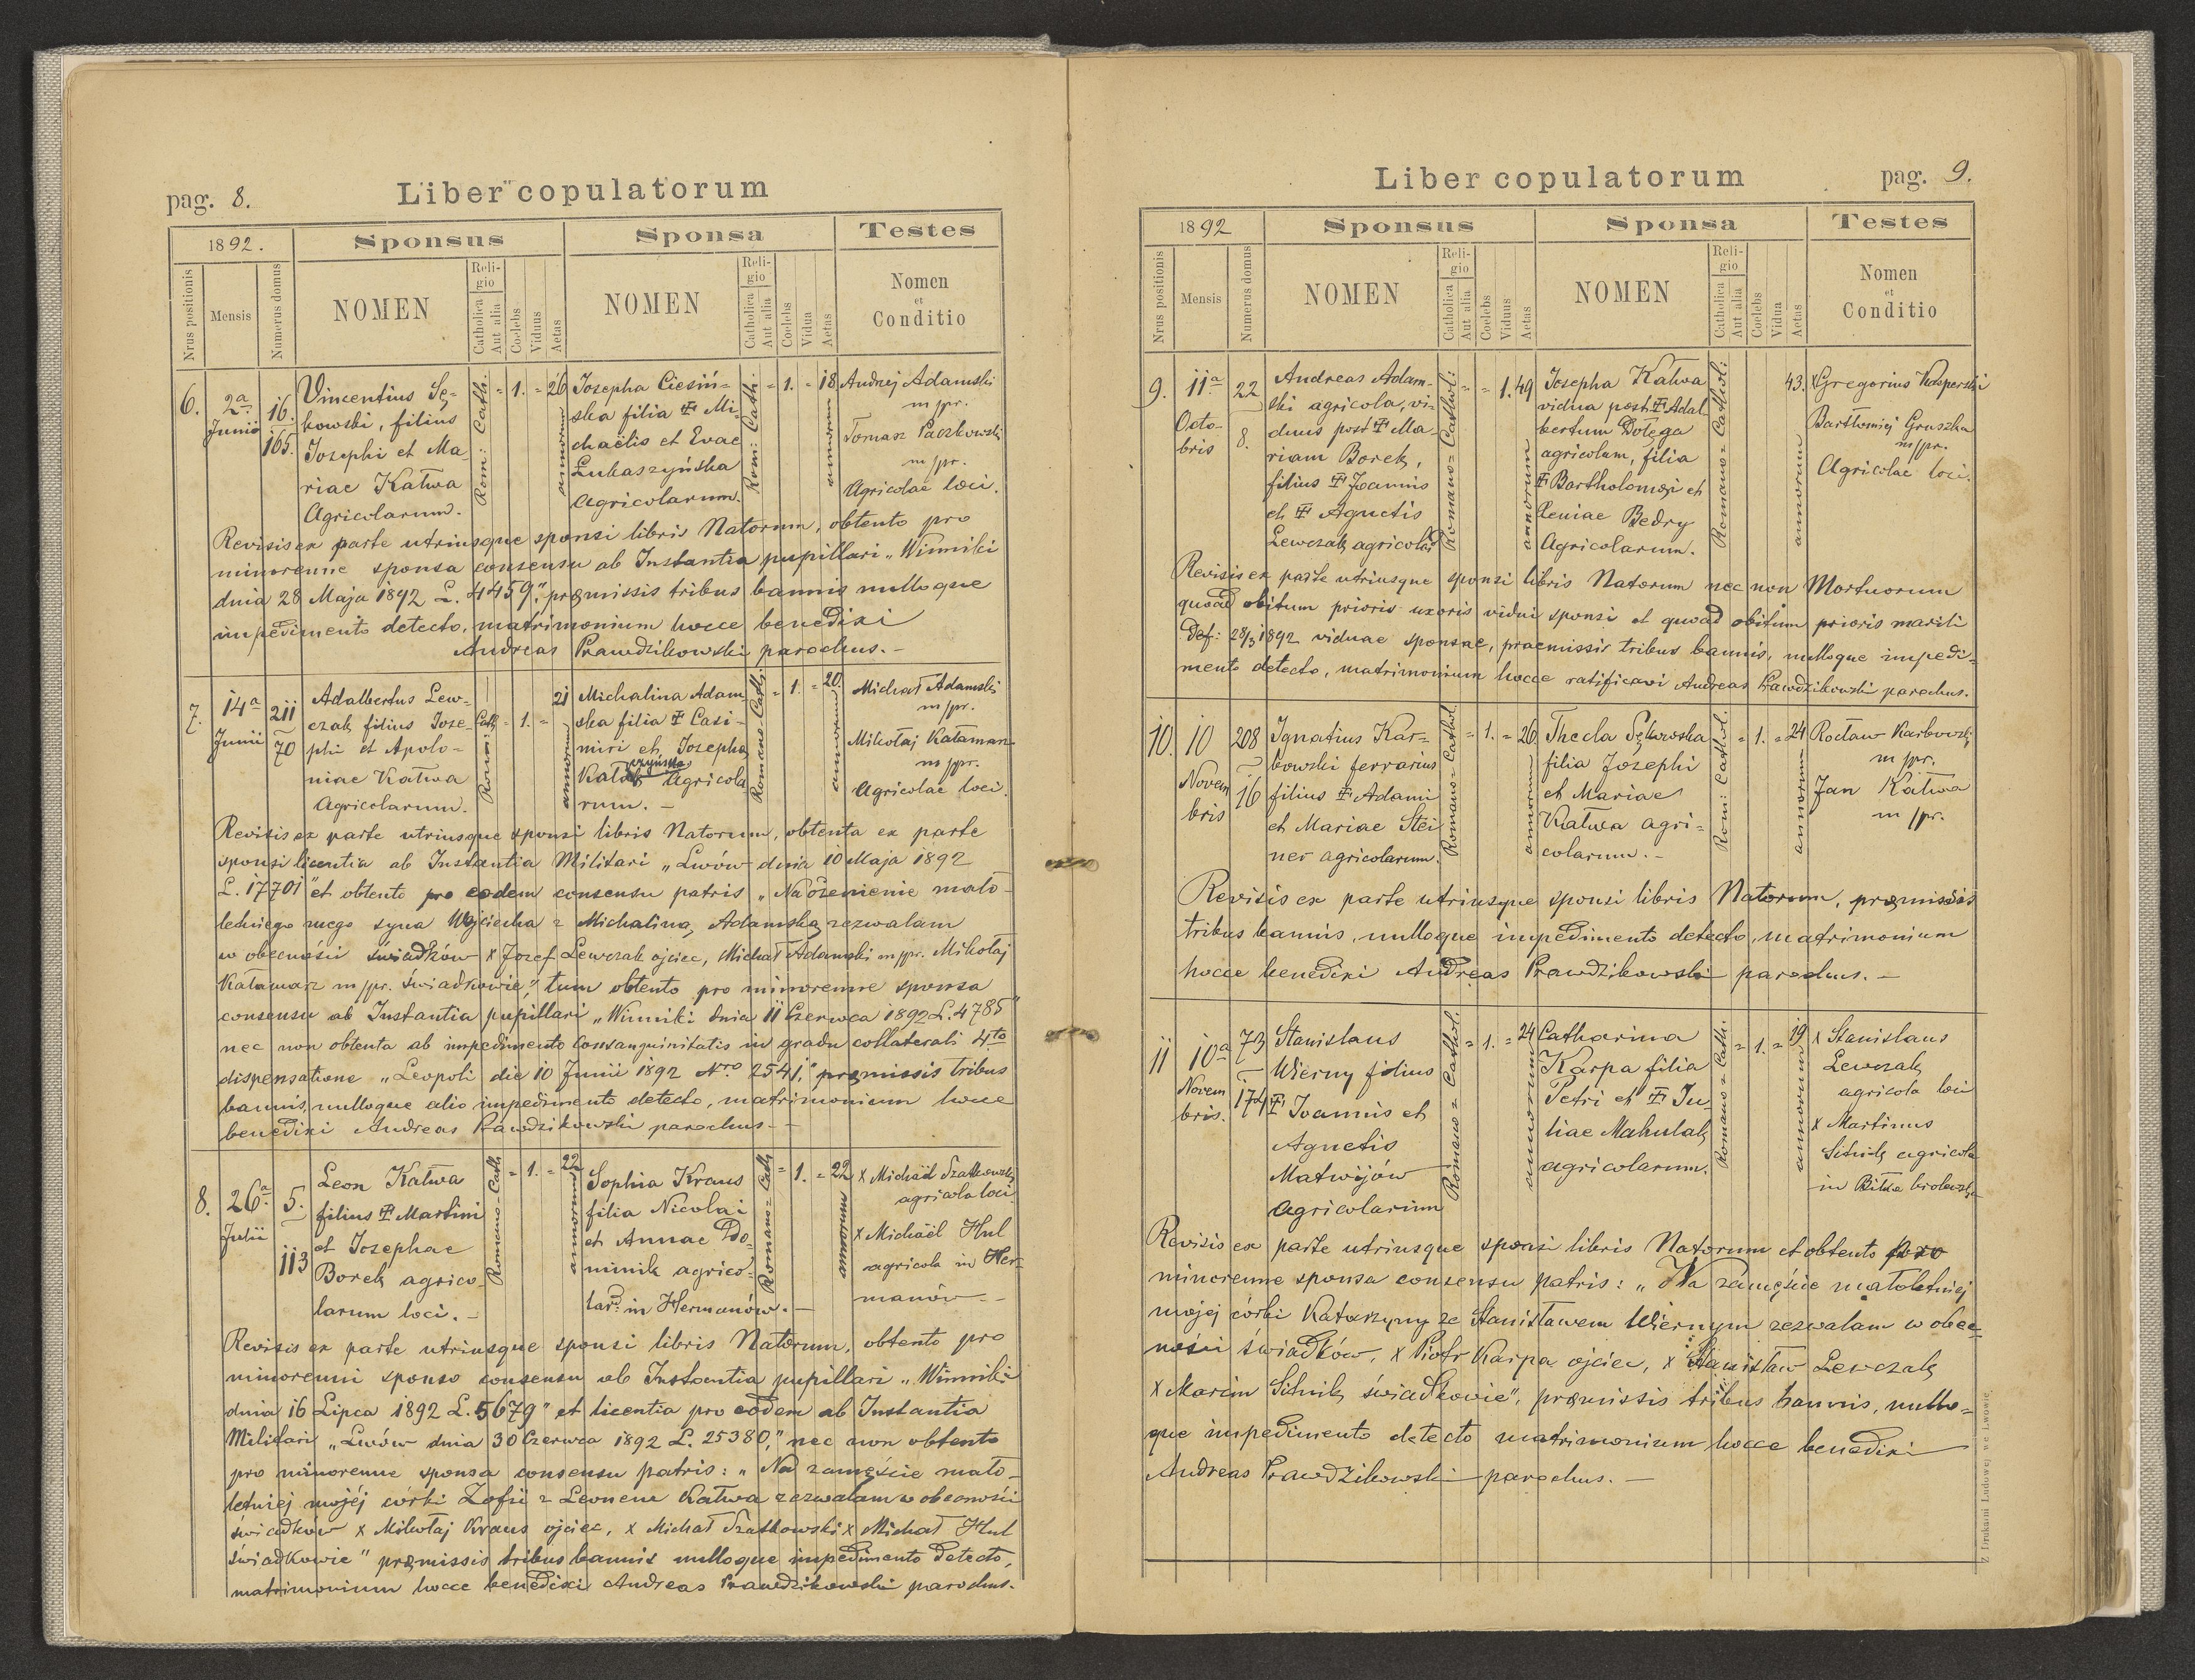 pag. 8.
Liber copulatorum
1892.
Sponsus
Sponsa
Testes
Nrus positionis
Mensis
Numerus domus
NOMEN
Religio
Catholica
Aut alia
Coelebs
Viduus
Aetas
NOMEN
Religio
Catholica
Aut alia
Coelebs
Vidua
Aetas
Nomen
et
Conditio
6.
2a
Junii
16.
165.
Vincentius Sę-
kowski, filius
Josephi et Ma
riae Kałwa
Agricolarum.
Rom: Cath:
1.
26
annorum
Josepha Ciesiń-
ska filia Mi-
chaëlis et Evae
Łukaszyńska
Agricolarum.
Rom: Cath:
1.
18
annorum
Andrzej Adamski
m/pr.
Tomasz Paczkowski
m/pr.
Agricolae loci.
Revisis ex parte utriusque sponsi libris Natorum, obtento pro
minorenne sponsa consensu ab Instantia pupillari „Winniki
dnia 28 Maja 1892 L. 4459," pręmissis tribus bannis nulloque
impedimento detecto, matrimonium hocce benedixi
Andreas Prawdzikowski parochus. -
7.
14a
Junii
211
70
Adalbertus Lew-
czak filius Jose-
phi et Apolo-
niae Kałwa
Agricolarum.
Roman: Cath
1.
21
annorum
Michalina Adam
ska filia Casi-
miri et Josepha
Agricola
rum. -
Romano-Cath:
1.
20
annorum
Michał Adamski
m/pr.
Mikołaj Katamarz
m/pr.
Agricolae loci.
Revisis ex parte utriusque sponsi libris Natorum, obtenta ex parte
sponsi licentia ab Instantia Militari „Lwów dnia 10 Maja 1892
L. 17701" et obtento pro eodem consensu patris „Na ożenienie mało-
letniego mego syna Wojciecha z Michaliną Adamską zezwalam
w obecności świadków x Józef Lewczak ojciec, Michał Adamski m/pr. Mikołaj
Katamarz m/pr. świadkowie", tum obtento pro minorenne sponsa
consensu ab Instantia pupillari „Winniki dnia 11 Czerwca 1892 L. 4785"
nec non obtenta ab impedimento consanguinitatis in gradu collaterali 4to
dispensatione „Leopoli die 10 Junii 1892 Nro 2541," pręmissis tribus
bannis, nulloque alio impedimento detecto, matrimonium hocce
benedixi Andreas Prawdzikowski parochus. -
8.
26a
Julii
5.
113
Leon Kałwa
filius Martini
et Josephae
Borek agrico-
larum loci. -
Romano-Cath
1.
22
annorum
Sophia Kraus
filia Nicolai
et Annae Do-
minik agrico-
lar: in Hermanów. -
Romano-Cath
1.
22
annorum
x Michaël Szatkowski
agricola loci
x Michaël Hul
agricola in Her-
manów -
Revisis ex parte utriusque sponsi libris Natorum, obtento pro
minorenni sponso consensu ab Instantia pupillari „Winniki
dnia 16 Lipca 1892 L. 5679" et licentia pro eodem ab Instantia
Militari „Lwów dnia 30 Czerwca 1892 L. 25380," nec non obtento
pro minorenne sponsa consensu patris: „Na zamęście mało-
letniej mojéj córki Zofii z Leonem Kałwa zezwalam w obecności
świadków x Mikołaj Kraus ojciec, x Michał Szatkowski x Michał Hul
świadkowie" pręmissis tribus bannis nulloque impedimento detecto,
matrimonium hocce benedixi Andreas Prawdzikowski parochus.
Liber copulatorum
pag. 9.
1892
Sponsus
Sponsa
Testes
Nrus positionis
Mensis
Numerus domus
NOMEN
Religio
Catholica
Aut alia
Coelebs
Viduus
Aetas
NOMEN
Religio
Catholica
Aut alia
Coelebs
Vidua
Aetas
Nomen
et
Conditio
9.
11a
Octo-
bris
22
8.
Andreas Adam-
ski agricola, vi-
duus post Ma-
riam Borek,
filius Joannis
et Agnetis
Lewczak agricolar
Romano-Cathol:
1.
49
annorum
Josepha Kałwa
vidua post Adal
bertum Dołęga
agricolam, filia
Bartholomęi et
Xeniae Bedry
Agricolarum.
Romano-Cathol:
43.
annorum
x Gregorius Kasperski
Bartłomiej Gruszka
m/pr.
Agricolae loci.
Revisis ex parte utriusque sponsi libris Natorum nec non Mortuorum
quoad obitum prioris uxoris vidui sponsi et quoad obitum prioris mariti
def: 28/3 1892 viduae sponsae, praemissis tribus bannis, nulloque impedi-
mento detecto, matrimonium hocce ratificavi Andreas Prawdzikowski parochus.
10.
10
Novem
bris
208
16
Ignatius Kar-
bowski ferrarius
filius Adami
et Mariae Stei
ner agricolarum.
Romano-Cathol.
1.
26
annorum
Thecla Sękowska
filia Josephi
et Mariae
Kałwa agri-
colarum. -
Rom: Cathol.
1.
24
annorum
Rocław Karbowski
m/pr.
Jan Kałwa
m/pr.
Revisis ex parte utriusque sponsi libris Natorum, pręmissis
tribus bannis, nulloque impedimento detecto, matrimonium
hocce benedixi Andreas Prawdzikowski parochus. -
11
10a
Novem
bris.
73
174
Stanislaus
Wierny filius
Joannis et
Agnetis
Matwijów
agricolarum
Romano-Cathol.
1.
24
annorum
Catharina
Karpa filia
Petri et Ju-
liae Mahulak
agricolarum.
Romano-Cath:
1.
19
annorum
x Stanislaus
Lewczak
agricola loci
x Martinus
Sitnik agricola
in Biłka
Revisis ex parte utriusque sponsi libris Natorum et obtento pro
minorenne sponsa consensu patris: „Na zamęście małoletniej
mojej córki Katarzyny ze Stanisławem Wiernym zezwalam w obec-
ności świadków, x Piotr Karpa ojciec, x Stanisław Lewczak
x Marcin Sitnik świadkowie", pręmissis tribus bannis, nullo-
que impedimento detecto matrimonium hocce benedixi
Andreas Prawdzikowski parochus. -
Z Drukarni Ludowej we Lwowie